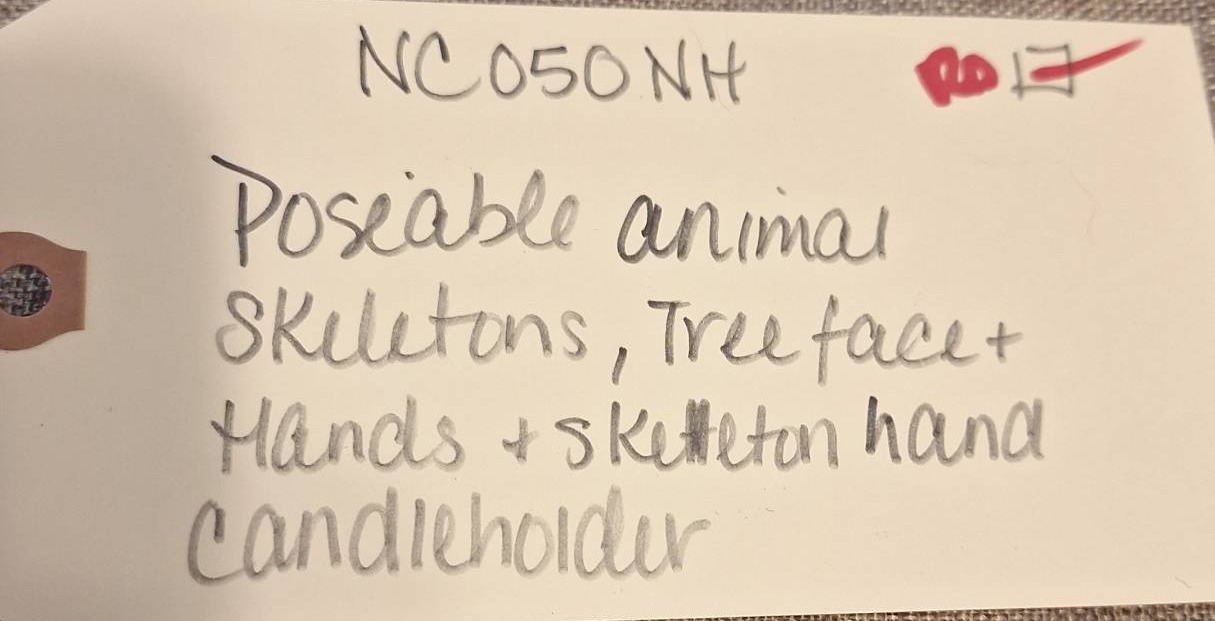 NC050NH
Poseable animal
Skeletons, Tree face +
Hands + skelleton hand
candleholder